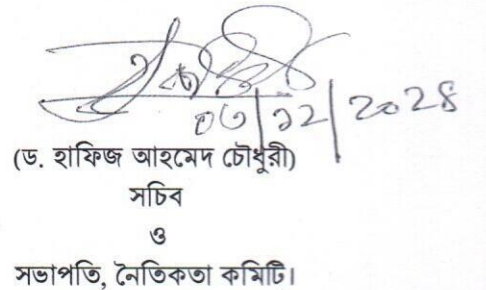 ০৩/১২/২০২৪
(ড. হাফিজ আহমেদ চৌধুরী)
সচিব
ও
সভাপতি, নৈতিকতা কমিটি।